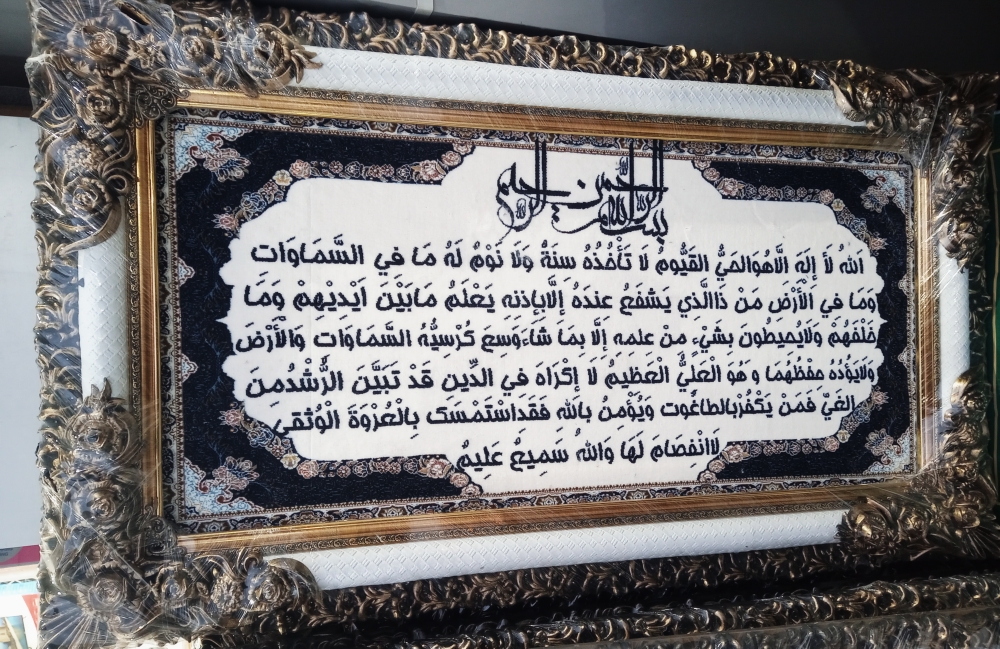 بسم الله الرحمن الرحيم
اللهُ لاَ إِلَهَ إلَّاهُوَالحَيُّ القَيُّوم لَا تَأْخُذُهُ سِنَةٌ وَلَا نَوْمٌ لَهُ مَا في السَّمَاوَات
وَمَا في الْأَرْضِ مَن ذَاالَّذي يَشفَعُ عندَهُ إلَّابإذنِهِ يَعْلَمُ مَابَيْنَ اَيديْهِمْ وَمَا
خَلْفَهُمْ وَلَايُحيطُونَ بشَيْءٍ منْ علمه إلَّا بِمَا شَاءَوَسِعَ كُرْسيُّهُ السَّمَاوَات وَالْأَرْضَ
وَلَايَؤُدُهُ حفْظُهُمَا وَهُوَ الْعَلِيُّ الْعَظِيمُ لَا إكْرَاهَ في الدِّين قَدْ تَبَيَّنَ الرُّشْدُمِنَ
الغَيِّ فَمَنْ يَكْفُرْبالطاغُوت وَيُؤْمِنُ بالله فَقَدِاسْتَمْسَكَ بِالْعُرْوَةِ الْوُثقَى
لَاانْفِصَامَ لَهَا وَاللهُ سَمِيعٌ عَلِيمٌ